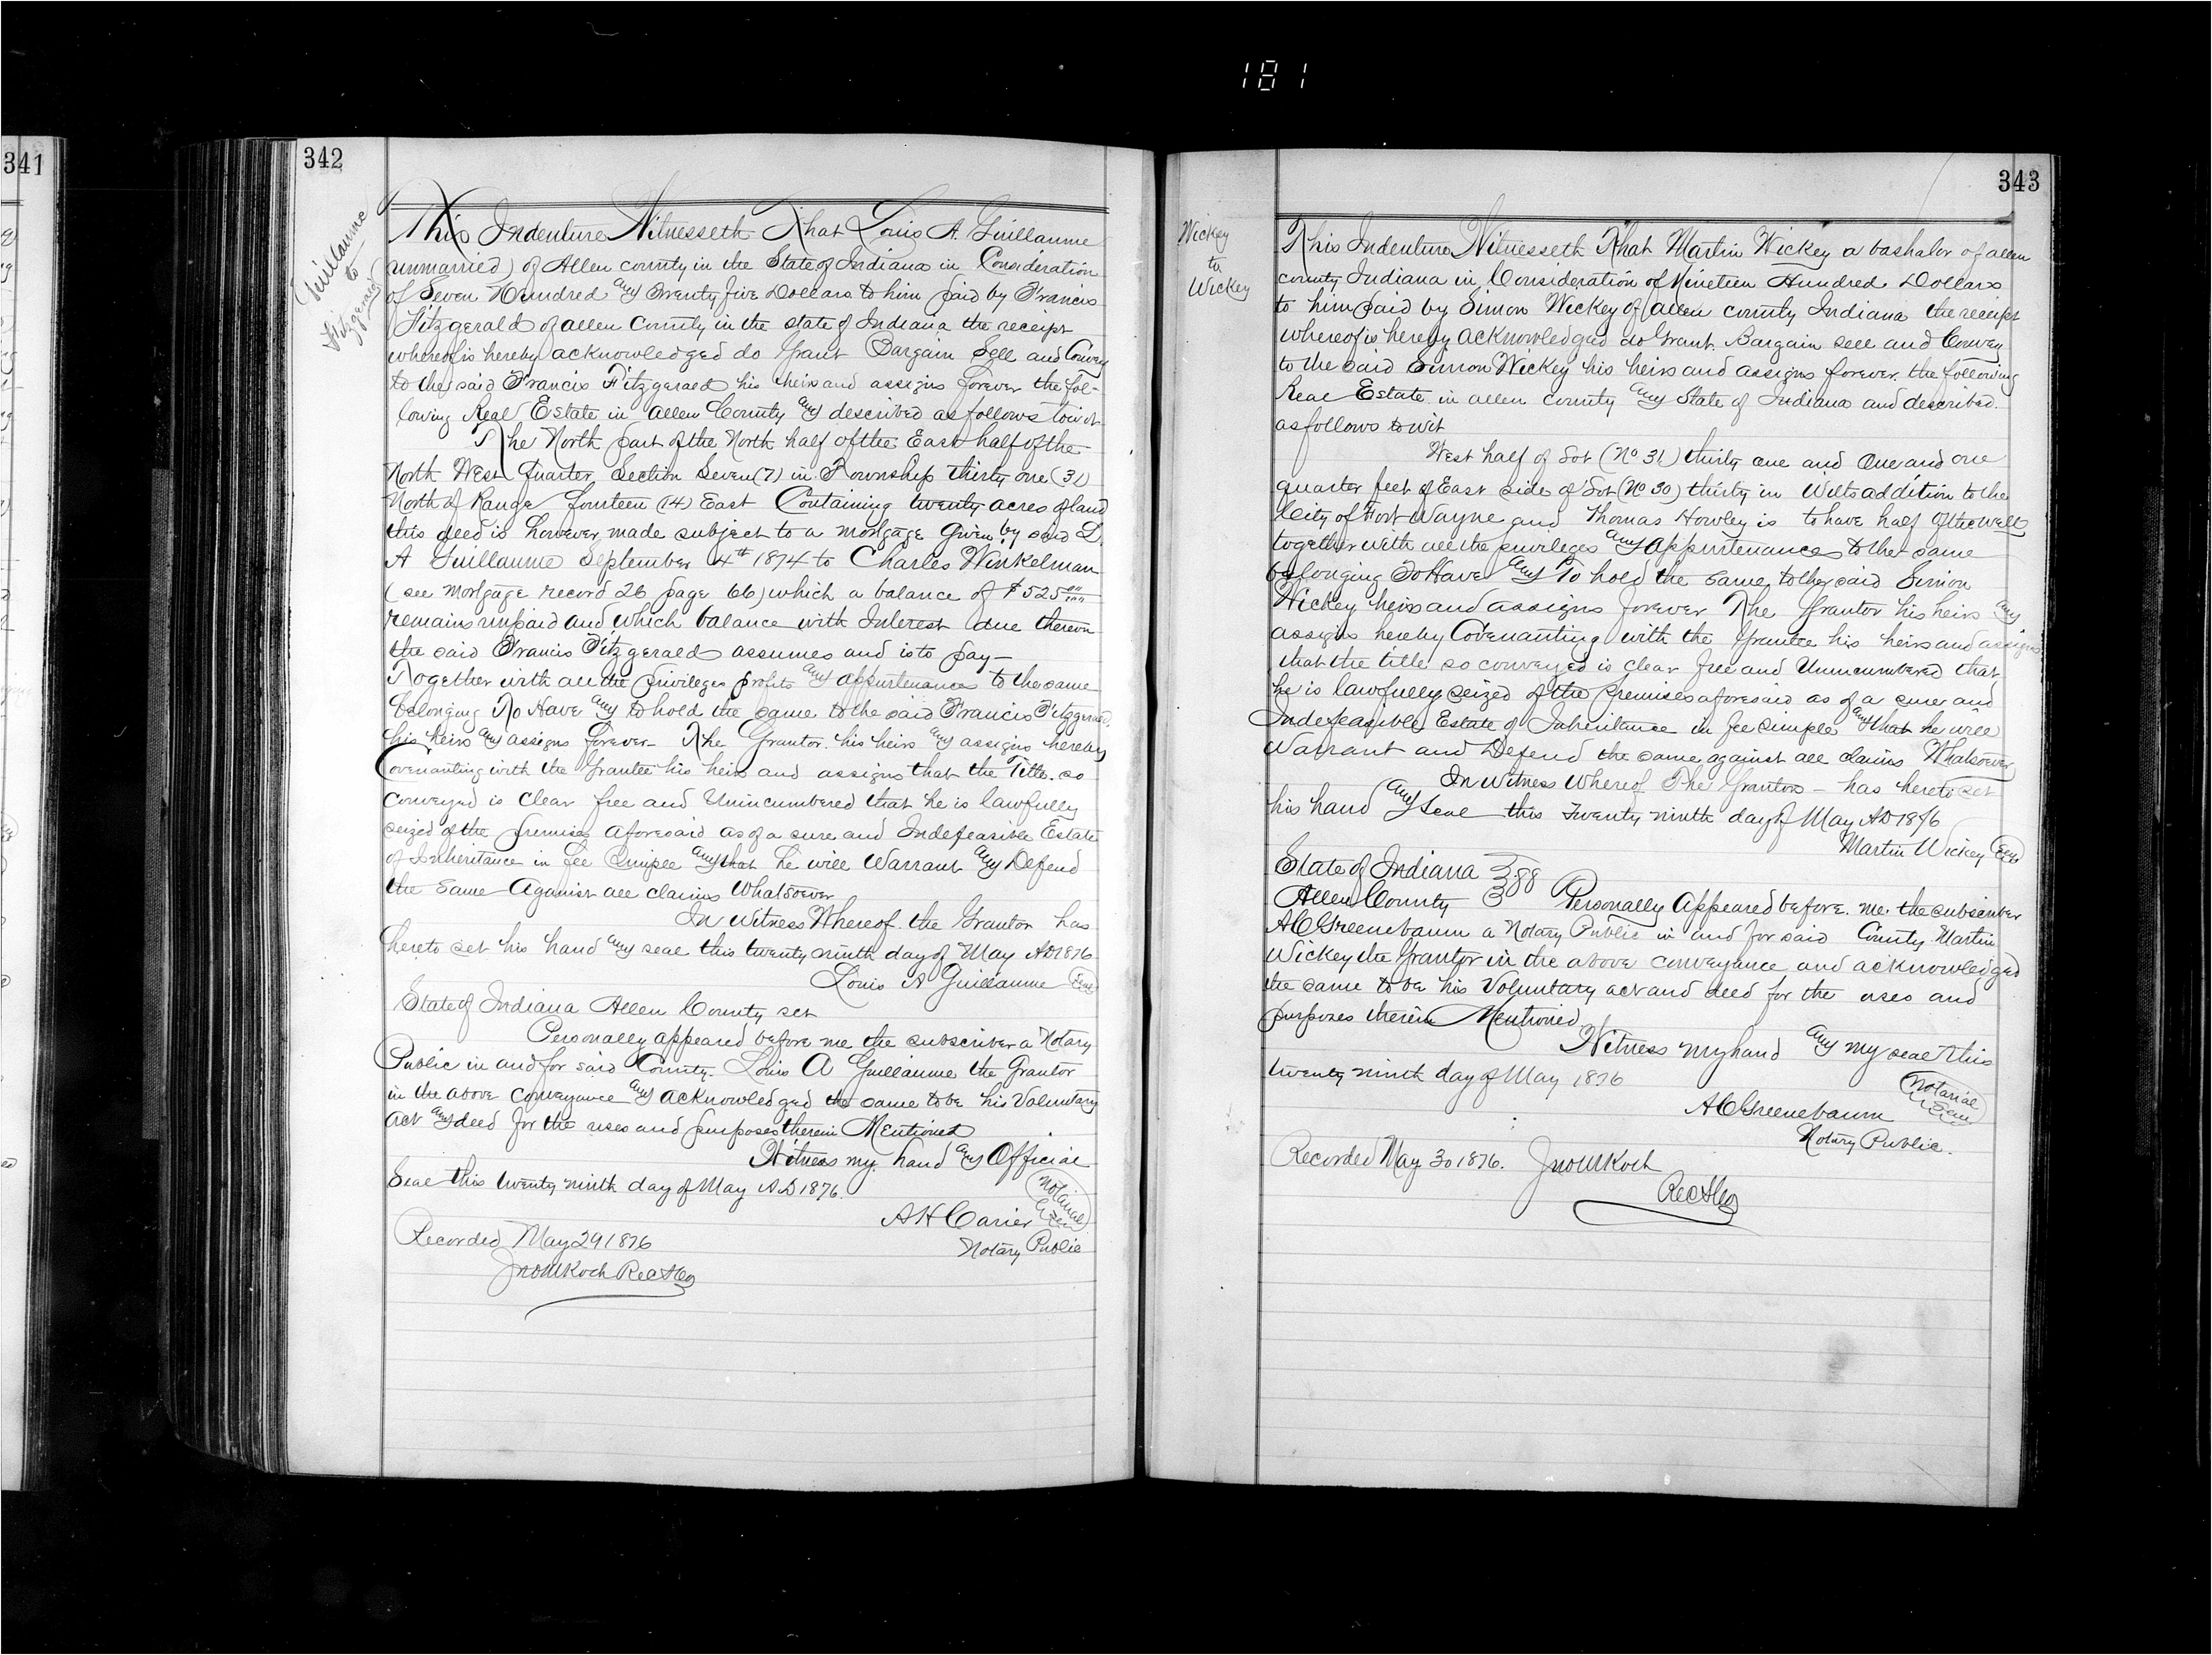 181
341
342
Guillaume
to
Fitzgerald
This Indenture Witnesseth That Louis A. Guillaume
(unmarried) of Allen county in the State of Indiana in Consideration
of Seven Hundred and Twenty five Dollars to him paid by Francis
Fitzgerald of allen County in the state of Indiana the receipt
whereof is hereby acknowledged do Grant Bargain Sell and Convey
to the said Francis Fitzgerald his heirs and assigns forever the fol-
lowing Real Estate in Allen County and described as follows towit
The North part of the North half of the East half of the
North West Quarter Section Seven (7) in Township thirty one (31)
North of Range fourteen (14) East Containing twenty acres of land
this deed is however made subject to a mortgage given by said L.
A Guillaume September 4th 1874 to Charles Winkelman
(see Mortgage record 26 page 66) which a balance of $525 00/100
remains unpaid and which balance with Interest due thereon
the said Francis Fitzgerald assumes and is to pay—
Together with all the privileges profits and appurtenances to the same
belonging To Have and to hold the same to the said Francis Fitzgerald
his heirs and assigns forever— The Grantor his heirs and assigns hereby
Covenanting with the Grantee his heirs and assigns that the Title so
conveyed is clear free and Unincumbered that he is lawfully
seized of the premises aforesaid as of a sure and Indefeasible Estate
of Inheritance in fee Simple and that he will Warrant and Defend
the same Against all claims Whatsoever
In Witness Whereof the Grantor has
hereto set his hand and seal this twenty ninth day of May AD1876
Louis A Guillaume Seal
State of Indiana Allen County set
Personally appeared before me the subscriber a Notary
Public in and for said County. Louis A Guillaume the Grantor
in the above conveyance and acknowledged the same to be his Voluntary
act and deed for the uses and purposes therein Mentioned
Witness my hand and Official
Seal this twenty ninth day of May AD 1876.
Notarial
Seal
A H Carier
Notary Public
Recorded May 29 1876
Jno M Koch Rec
343
Wickey
to
Wickey
This Indenture Witnesseth That Martin Wickey a bashalor of allen
county Indiana in Consideration of Nineteen Hundred Dollars
to him paid by Simon Wickey of allen county Indiana the receipt
whereof is hereby acknowledged do Grant Bargain sell and Convey
to the said Simon Wickey his heirs and assigns forever the following
Real Estate in allen county and State of Indiana and described
as follows to wit
West half of Lot (No 31) thirty one and One and one
quarter feet of East side of Lot (No 30) thirty in Wilts addition to the
City of Fort Wayne and Thomas Howley is to have half of the well
together with all the privileges and appurtenances to the same
belonging To Have and To hold the same to the said Simon
Wickey heirs and assigns forever The Grantor his heirs and
assigns hereby Covenanting with the Grantee his heirs and assigns
that the title so conveyed is clear free and Unincumbered that
he is lawfully seized of the premises aforesaid as of a sure and
Indefeasible Estate of Inheritance in fee simple and that he will
Warrant and Defend the same against all claims Whatsoever
In Witness Whereof The Grantor — has hereto set
his hand and seal this twenty ninth day of May AD 1876
Martin Wickey Seal
State of Indiana } SS
Allen County } Personally Appeared before me the subscriber
A C Greenebaum a Notary Public in and for said County Martin
Wickey the Grantor in the above conveyance and acknowledged
the same to be his Voluntary act and deed for the uses and
purposes therein Mentioned
Witness my hand and my seal this
twenty ninth day of May 1876
Notarial
Seal
A C Greenebaum
Notary Public.
Recorded May 30 1876. Jno M Koch
Rec